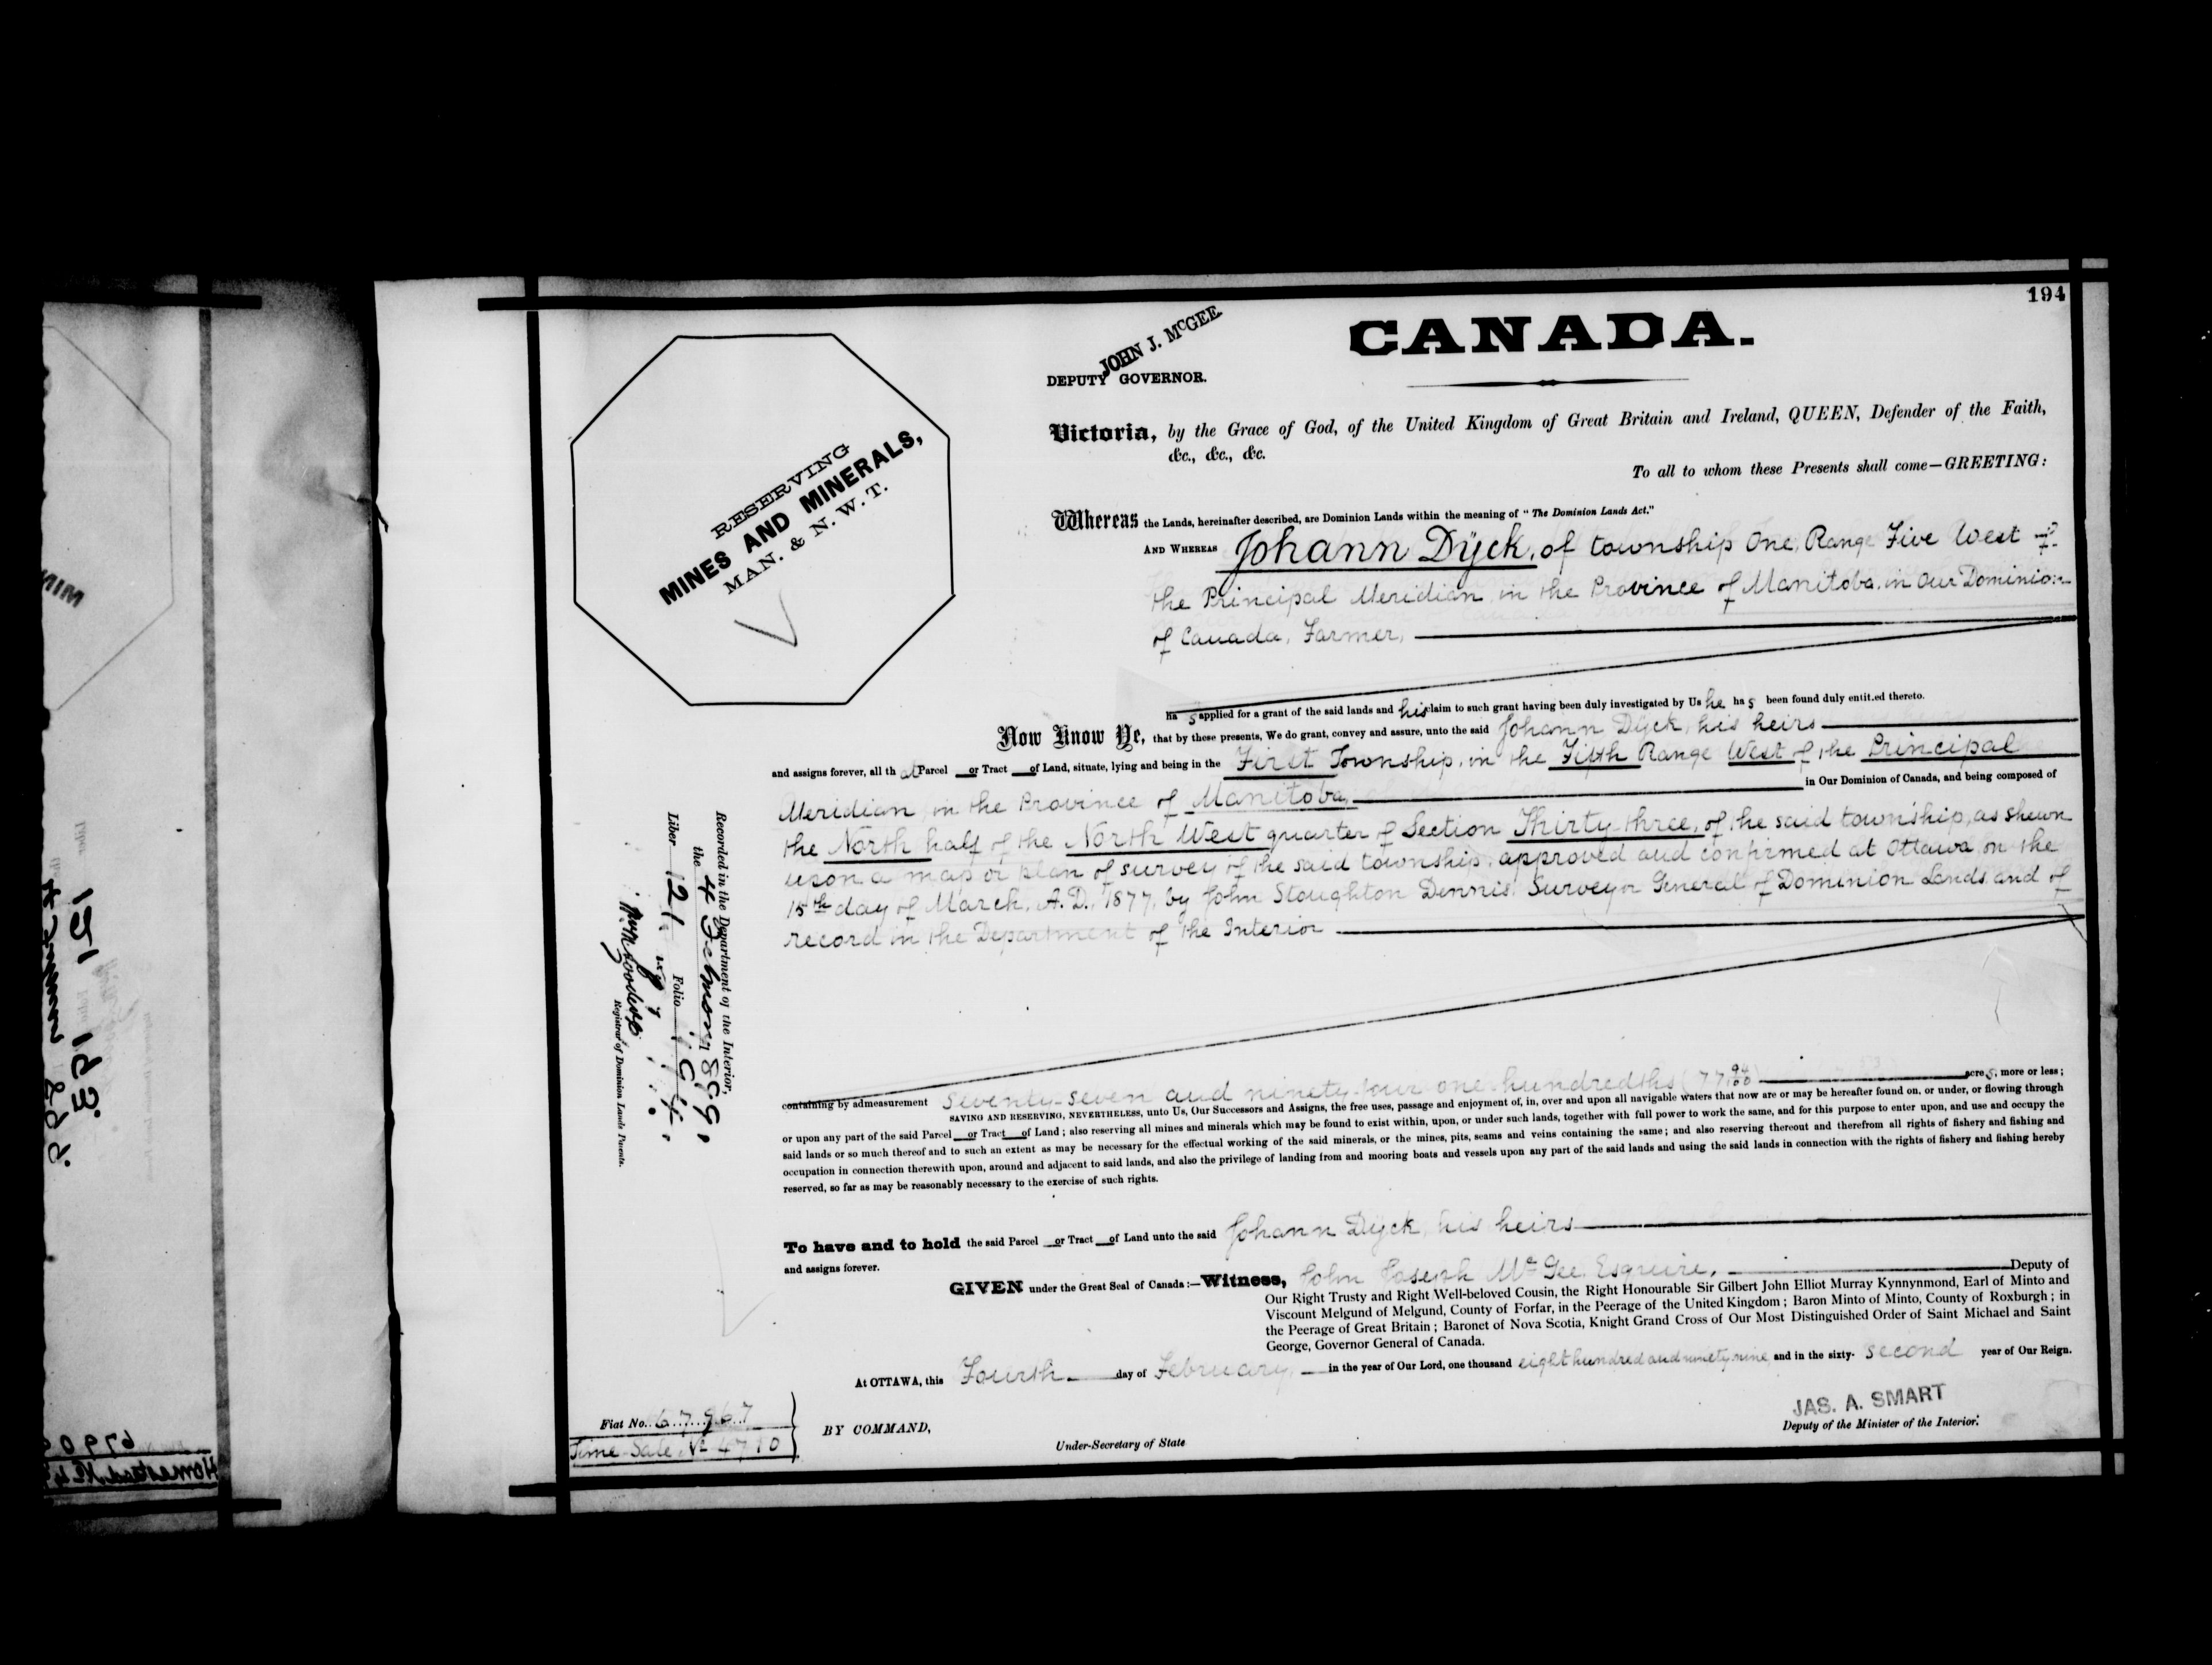 194
CANADA.
JOHN J. McGEE
DEPUTY GOVERNOR.
RESERVING
MINES AND MINERALS,
MAN. & N. W. T.
Victoria, by the Grace of God, of the United Kingdom of Great Britain and Ireland, QUEEN, Defender of the Faith,
&c., &c., &c.
To all to whom these Presents shall come—GREETING:
Whereas the Lands, hereinafter described, are Dominion Lands within the meaning of "The Dominion Lands Act."
AND WHEREAS Johann Dyck, of township One, Range Five West of
the Principal Meridian in the Province of Manitoba, in Our Dominion
of Canada, Farmer,
ha s applied for a grant of the said lands and his claim to such grant having been duly investigated by Us he ha s been found duly entit.ed thereto.
Now Know Ye, that by these presents, We do grant, convey and assure, unto the said Johann Dyck, his heirs
and assigns forever, all th at Parcel or Tract of Land, situate, lying and being in the First Township, in the Fifth Range West of the Principal
Meridian in the Province of Manitoba, in Our Dominion of Canada, and being composed of
the North half of the North West quarter of Section Thirty three, of the said township, as shewn
upon a map or plan of survey of the said township, approved and confirmed at Ottawa, on the
15th day of March, A.D. 1877, by John Stoughton Dennis Surveyor General of Dominion Lands and of
record in the Department of the Interior
containing by admeasurement Seventy-seven and ninety-four one-hundredths (77 94/100) acres, more or less;
SAVING AND RESERVING, NEVERTHELESS, unto Us, Our Successors and Assigns, the free uses, passage and enjoyment of, in, over and upon all navigable waters that now are or may be hereafter found on, or under, or flowing through
or upon any part of the said Parcel or Tract of Land; also reserving all mines and minerals which may be found to exist within, upon, or under such lands, together with full power to work the same, and for this purpose to enter upon, and use and occupy the
said lands or so much thereof and to such an extent as may be necessary for the effectual working of the said minerals, or the mines, pits, seams and veins containing the same; and also reserving thereout and therefrom all rights of fishery and fishing and
occupation in connection therewith upon, around and adjacent to said lands, and also the privilege of landing from and mooring boats and vessels upon any part of the said lands and using the said lands in connection with the rights of fishery and fishing hereby
reserved, so far as may be reasonably necessary to the exercise of such rights.
To have and to hold the said Parcel or Tract of Land unto the said Johann Dyck, his heirs
and assigns forever.
GIVEN under the Great Seal of Canada:—Witness, John Joseph McGee Esquire, Deputy of
Our Right Trusty and Right Well-beloved Cousin, the Right Honourable Sir Gilbert John Elliot Murray Kynnynmond, Earl of Minto and
Viscount Melgund of Melgund, County of Forfar, in the Peerage of the United Kingdom; Baron Minto of Minto, County of Roxburgh; in
the Peerage of Great Britain; Baronet of Nova Scotia, Knight Grand Cross of Our Most Distinguished Order of Saint Michael and Saint
George, Governor General of Canada.
At OTTAWA, this Fourth day of February, in the year of Our Lord, one thousand eight hundred and ninety nine and in the sixty- second year of Our Reign.
JAS. A. SMART
Deputy of the Minister of the Interior.
BY COMMAND,
Under-Secretary of State
Fiat No. 67967
Time Sale No 4710
Recorded in the Department of the Interior,
the 4 February 1899,
Liber 121 Folio 194.
Registrar of Dominion Lands Patents.